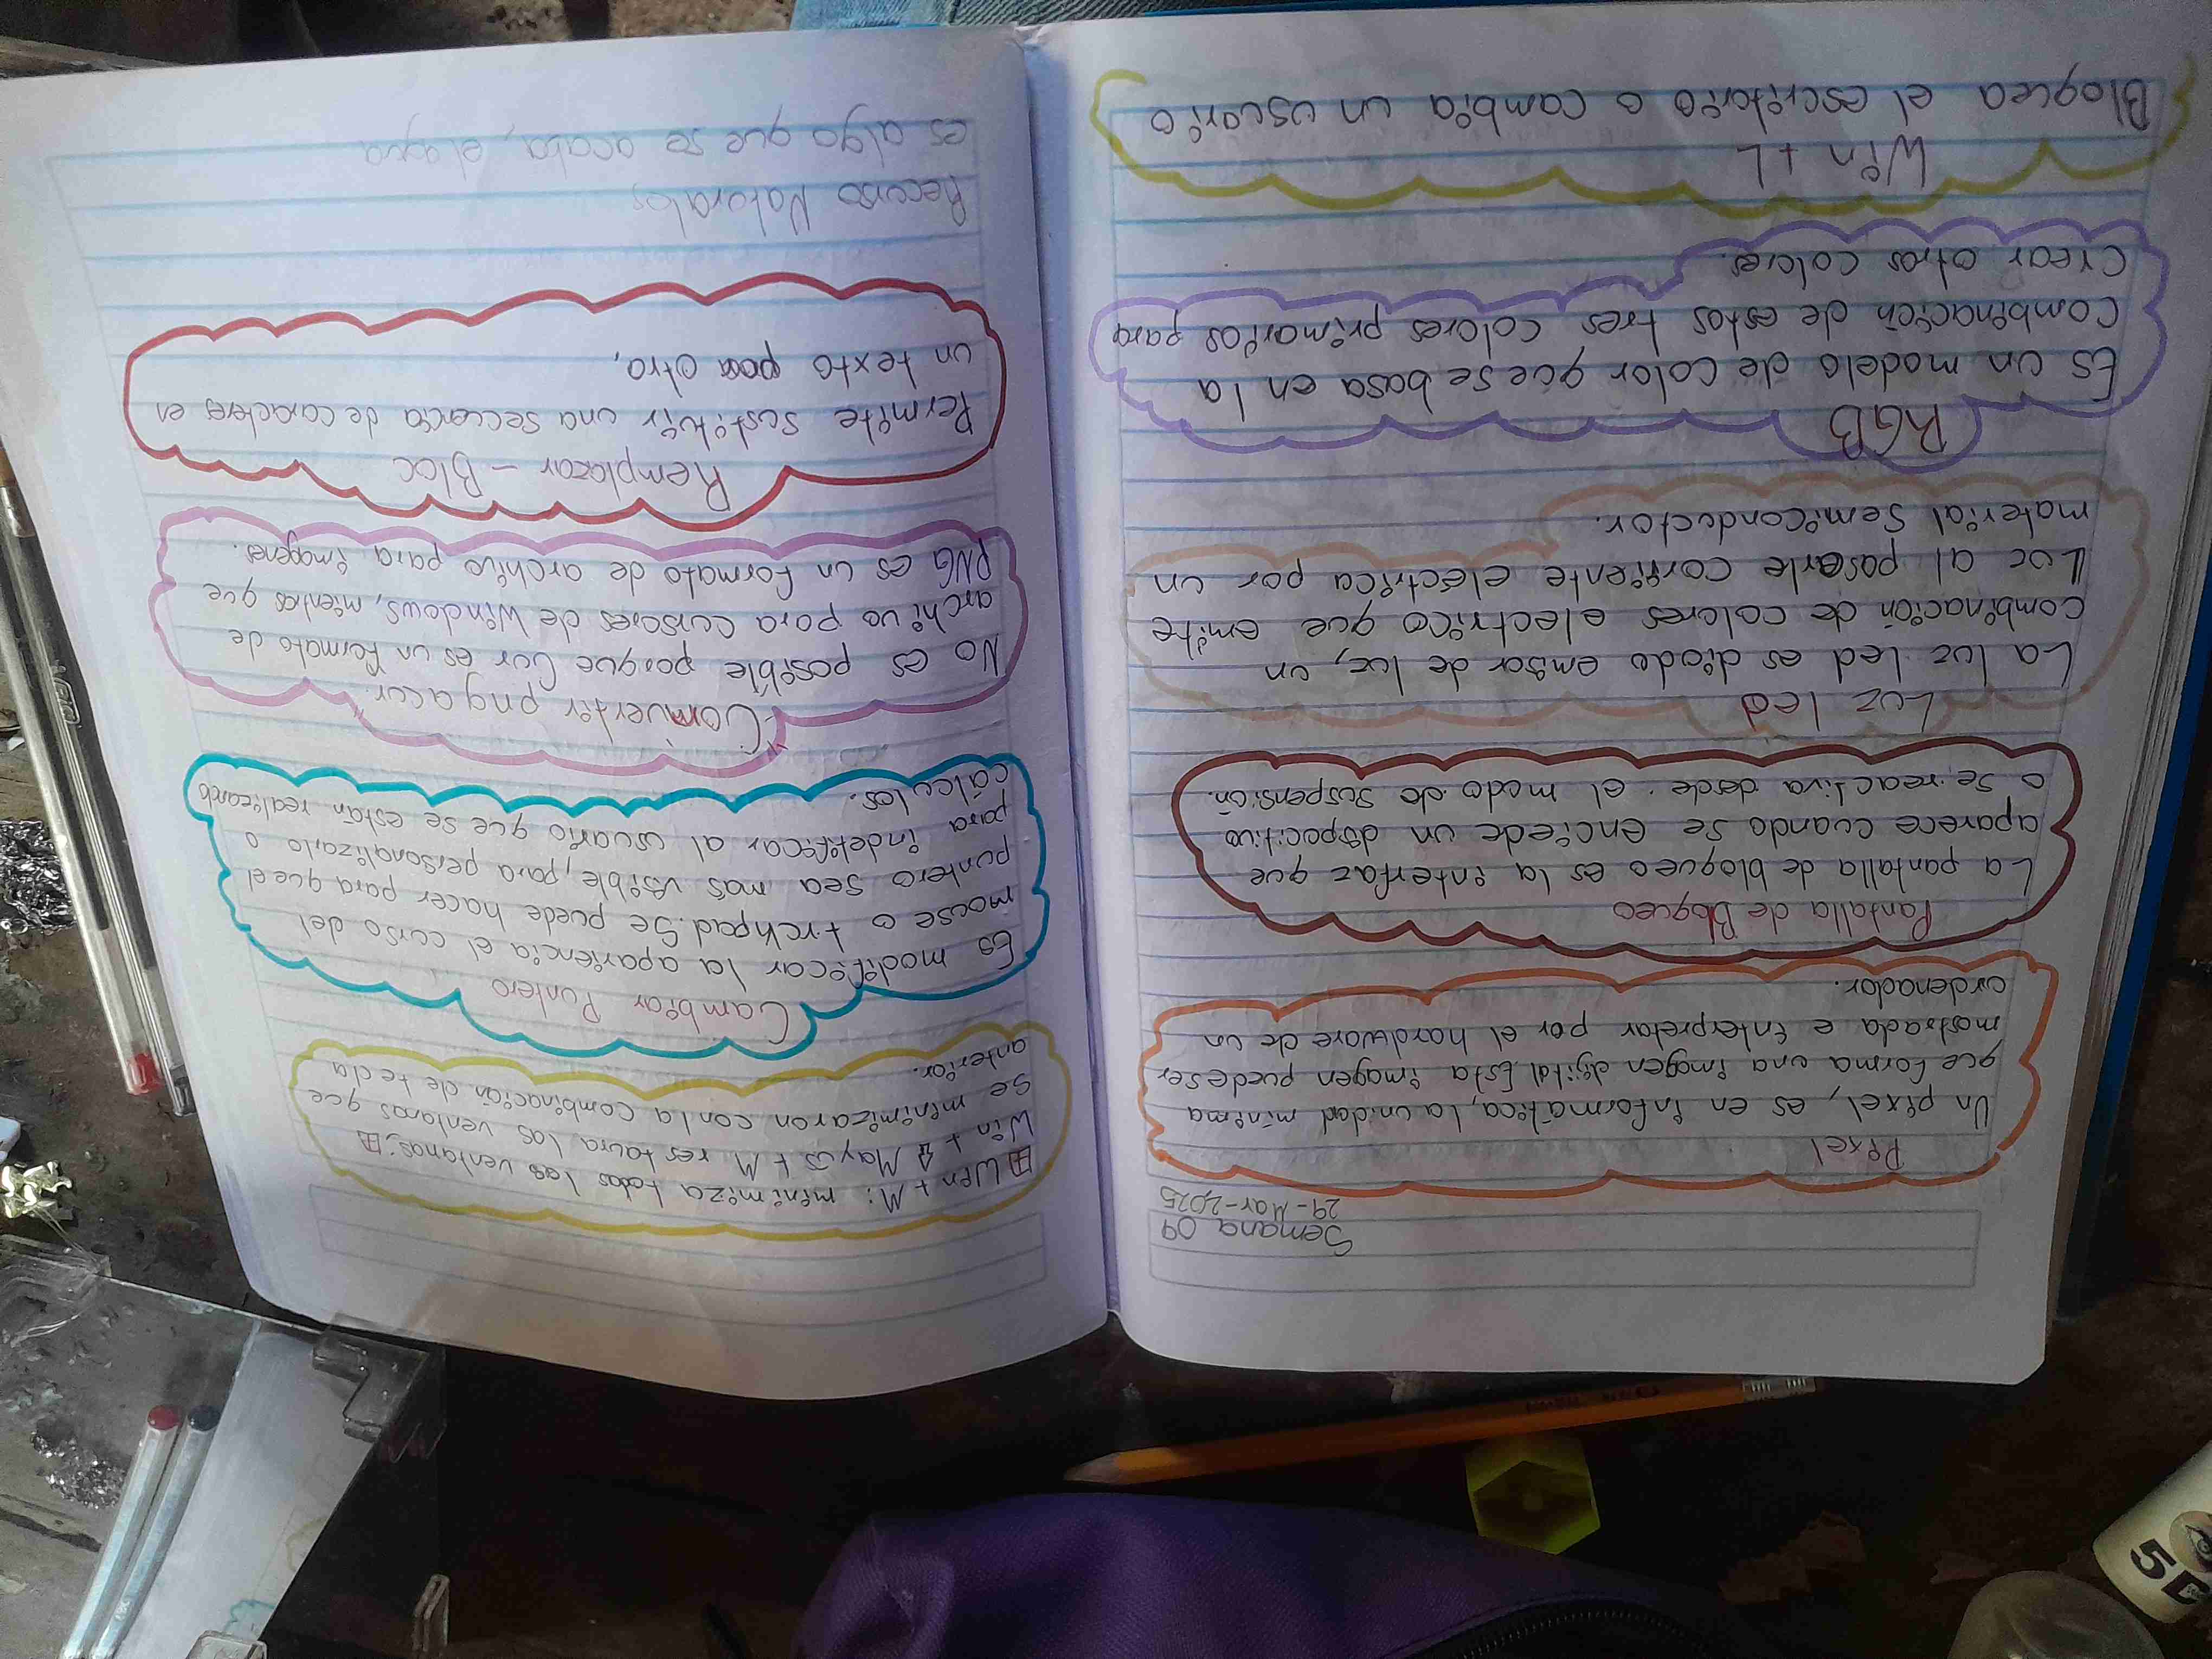 Semana 09
29-Mar-2025
Pixel
Un pixel, es en informatica, la unidad minima
que forma una imagen digital. Esta imagen puede ser
mostrada e interpretar por el hardware de un
ordenador.
Pantalla de Bloqueo
La pantalla de bloqueo es la interfaz que
aparece cuando se enciede un dispocitivo
o se reactiva desde el modo de suspensión.
Luz led
La luz led es diodo emisor de luz, un
combinación de colores electrico que emite
Luc al pasarle corriente eléctrica por un
material Semiconductor.
RGB
Es un modelo de color que se basa en la
Combinación de estos tres colores primarios para
Crear otros colores.
Win + L
Bloquea el escritorio o cambia un usuario
Win + M: minimiza todas las ventanas;
Win + ⇧ Mayús + M restaura las ventanas que
se minimizaron con la combinación de tecla
anterior.
Cambiar Puntero
Es modificar la apariencia el curso del
mouse o trchpad. Se puede hacer para que el
puntero sea más visible, para personalizarlo o
para indetificar al usuario que se están realizando
cálculos.
Convertir png a cur.
No es posible porque Cur es un formato de
archivo para cursores de Windows, mientras que
PNG es un formato de archivo para imagenes.
Remplazar - Bloc
Permite sustituir una secuencia de caracteres en
un texto por otra,
Recurso Naturales
es algo que se acaba, el agua
5